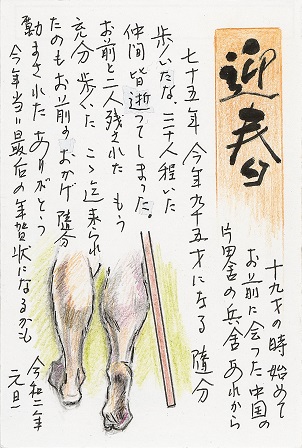 迎春
十九才の時始めて
お前に会った中国の
片田舎の兵舎 あれから
七十五年 今年九十五才になる 隨分
歩いたな、三十人程いた
仲間 皆逝ってしまった。
お前と二人残された もう
充分歩いた こゝ迄来られ
たのもお前のおかげ 隨分
励まされた ありがとう
今年当り最后の年賀状になるかも
令和二年
元旦